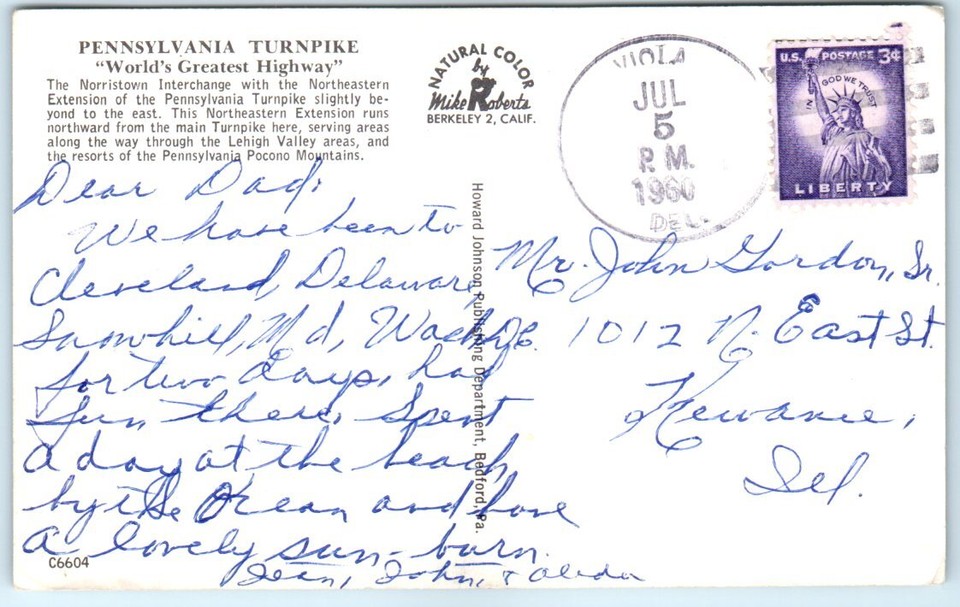 PENNSYLVANIA TURNPIKE
"World's Greatest Highway"
The Norristown Interchange with the Northeastern
Extension of the Pennsylvania Turnpike slightly be-
yond to the east. This Northeastern Extension runs
northward from the main Turnpike here, serving areas
along the way through the Lehigh Valley areas, and
the resorts of the Pennsylvania Pocono Mountains.
NATURAL COLOR
by
Mike Roberts
BERKELEY 2, CALIF.
VIOLA
JUL
5
P.M.
1960
DEL.
U.S. POSTAGE 3¢
IN GOD WE TRUST
LIBERTY
Dear Dad,
We have been to
Cleveland, Delaware,
Snowhill, Md, Wash DC.
for two days, had
fun there, Spent
a day at the beach,
by the Ocean and have
a lovely sun-burn.
Jean, John, & Aleda
Howard Johnson Publishing Department, Bedford, Pa.
Mr. John Gordon, Sr.
1012 N. East St.
Kewanee,
Ill.
C6604